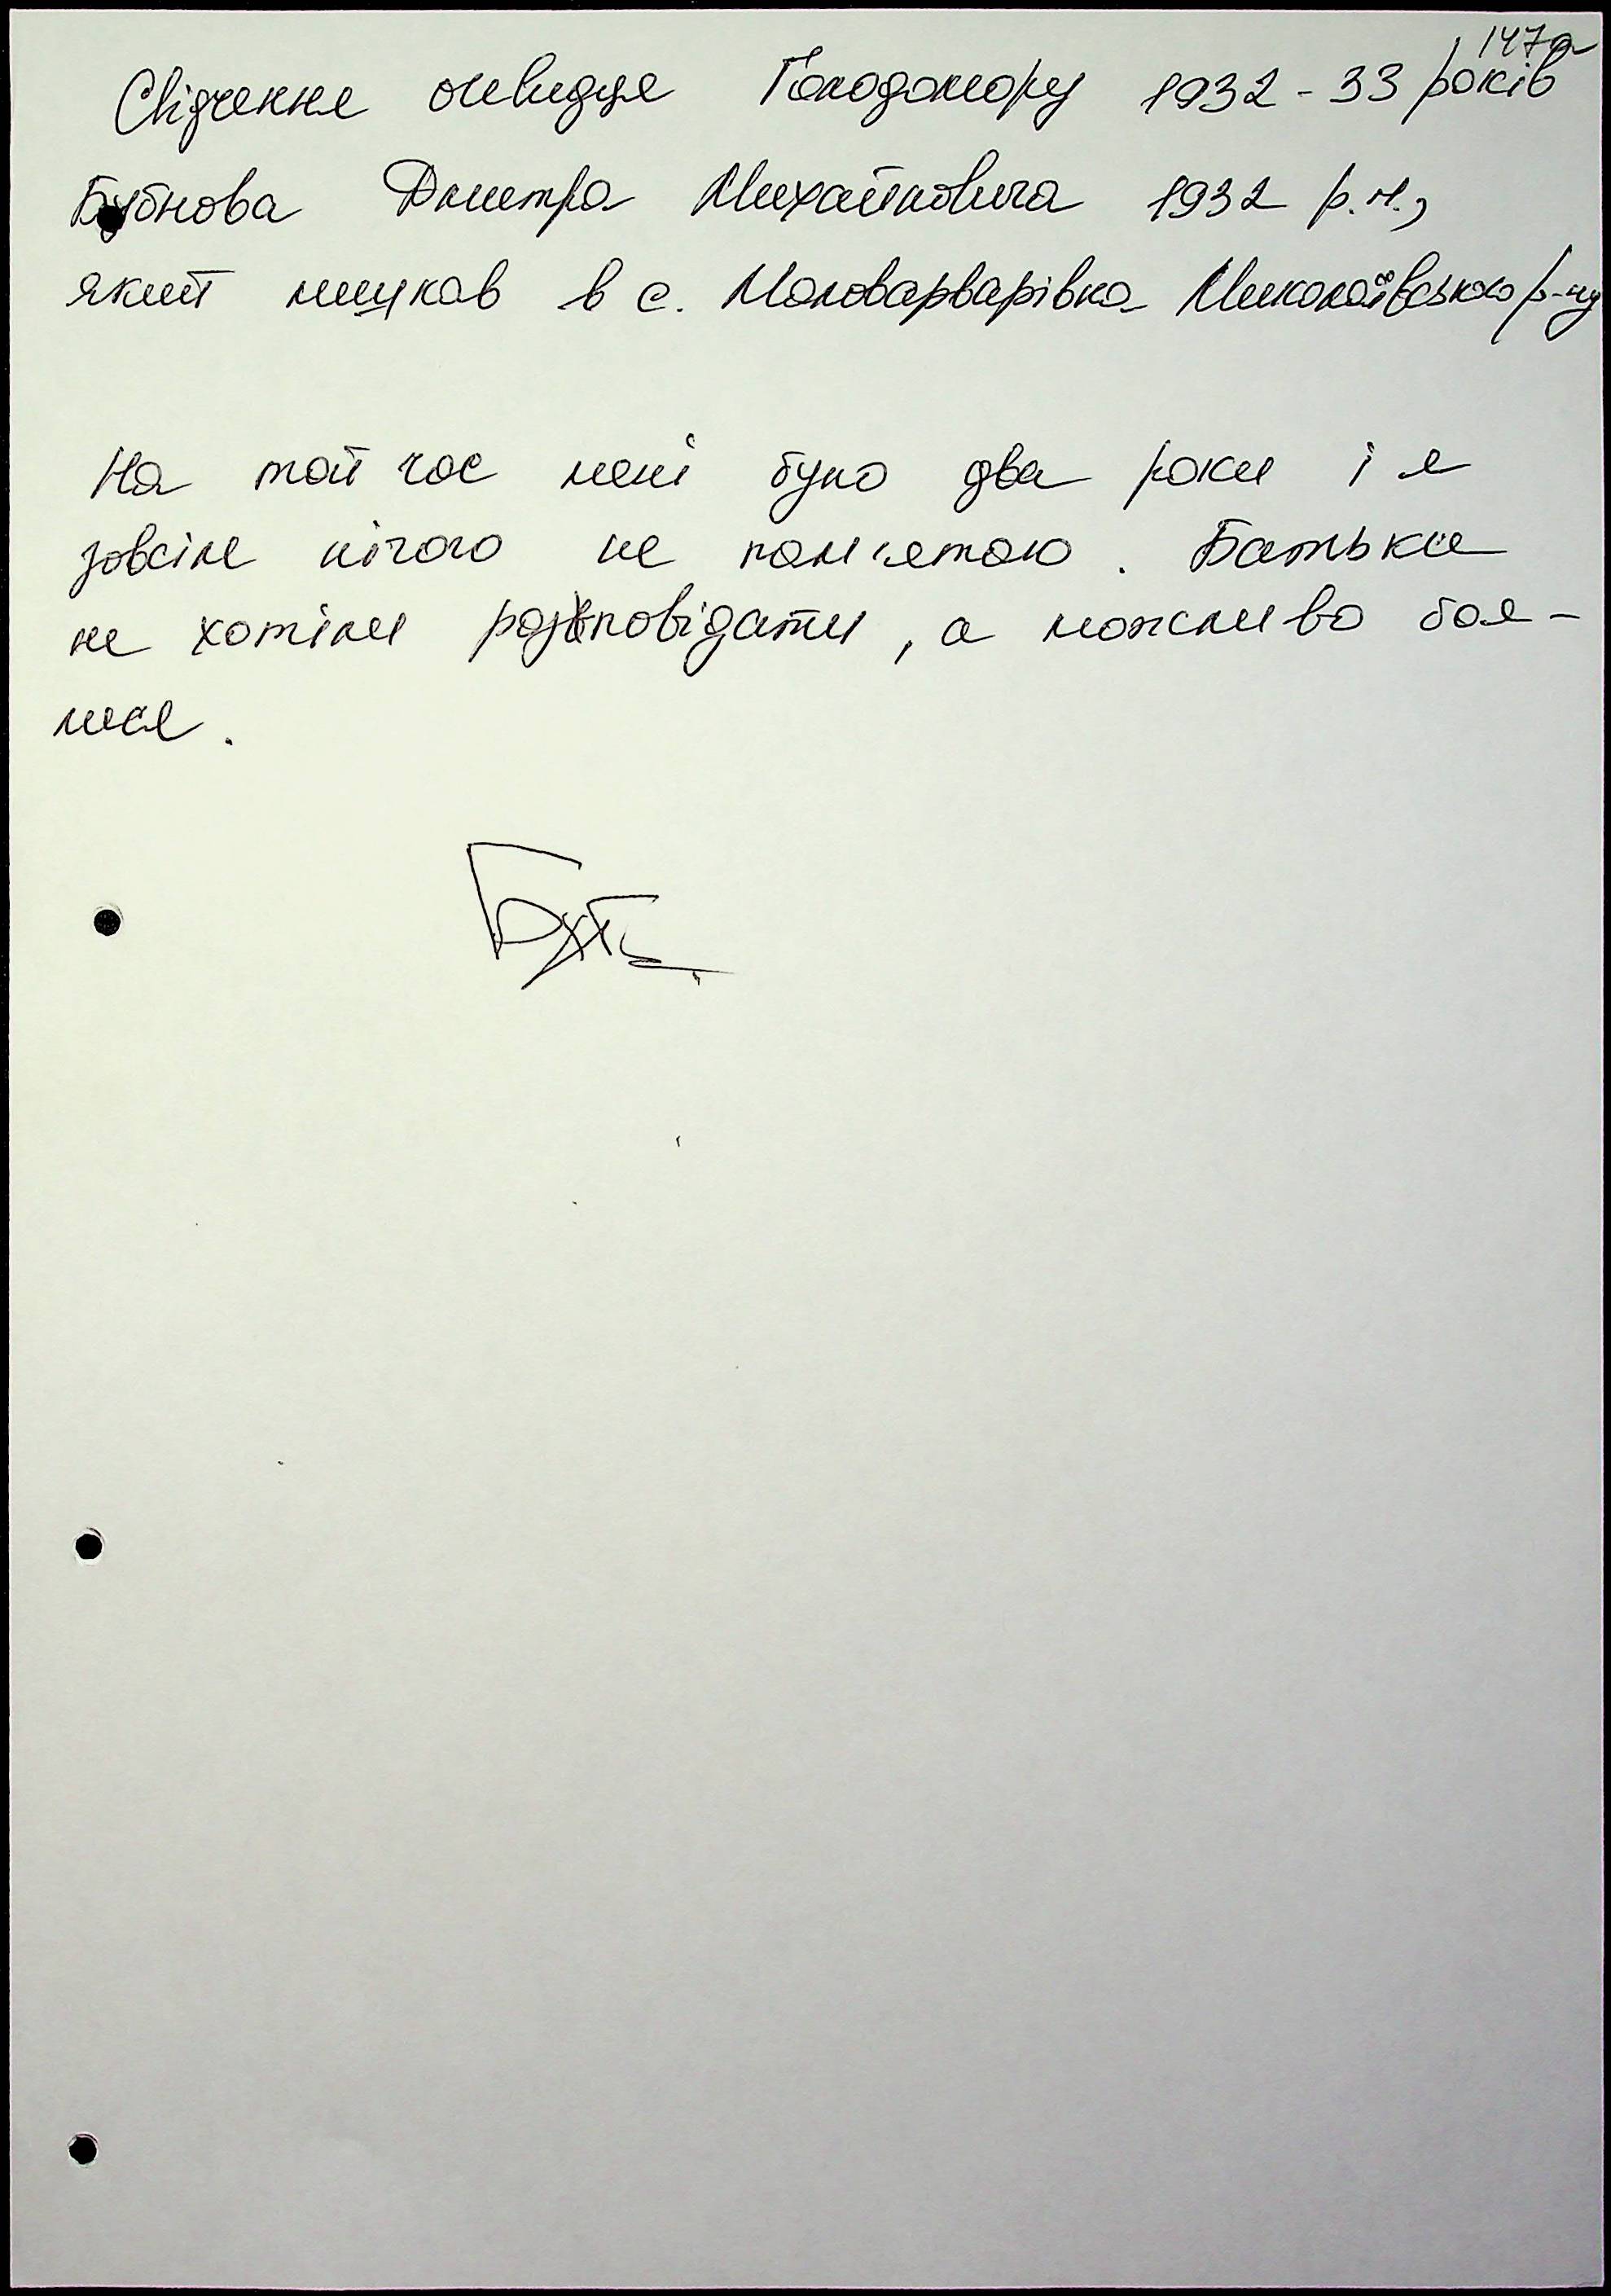 147а
Свідчення очевидця Голодомору 1932 - 33 років
Бубнова Дмитра Михайловича 1932 р.н.,
який мешкав в с. Маловарварівка Миколаївського р-ну
На той час мені було два роки і я
зовсім нічого не пам'ятаю. Батьки
не хотіли розповідати, а можливо боя-
лися.